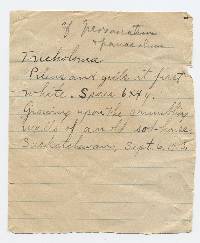 Tricholoma
Pileus and gills at first
white. Spores 6x4µ.
Growing upon the crumbling
walls of an old sod-house.
Saskatchewan, Sept. 6.05